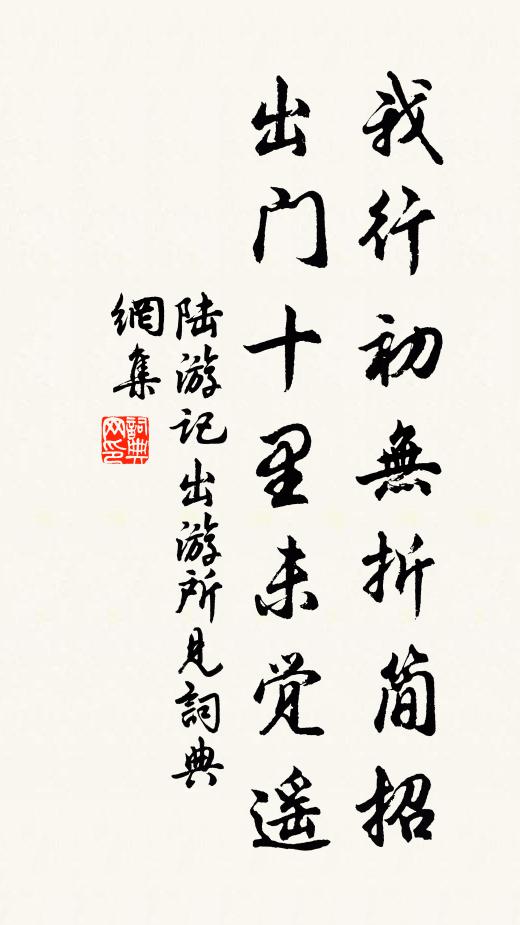 我行初無折简招
出门十里未觉遥
陆游记出游所見詞典
網集
詞典
网印